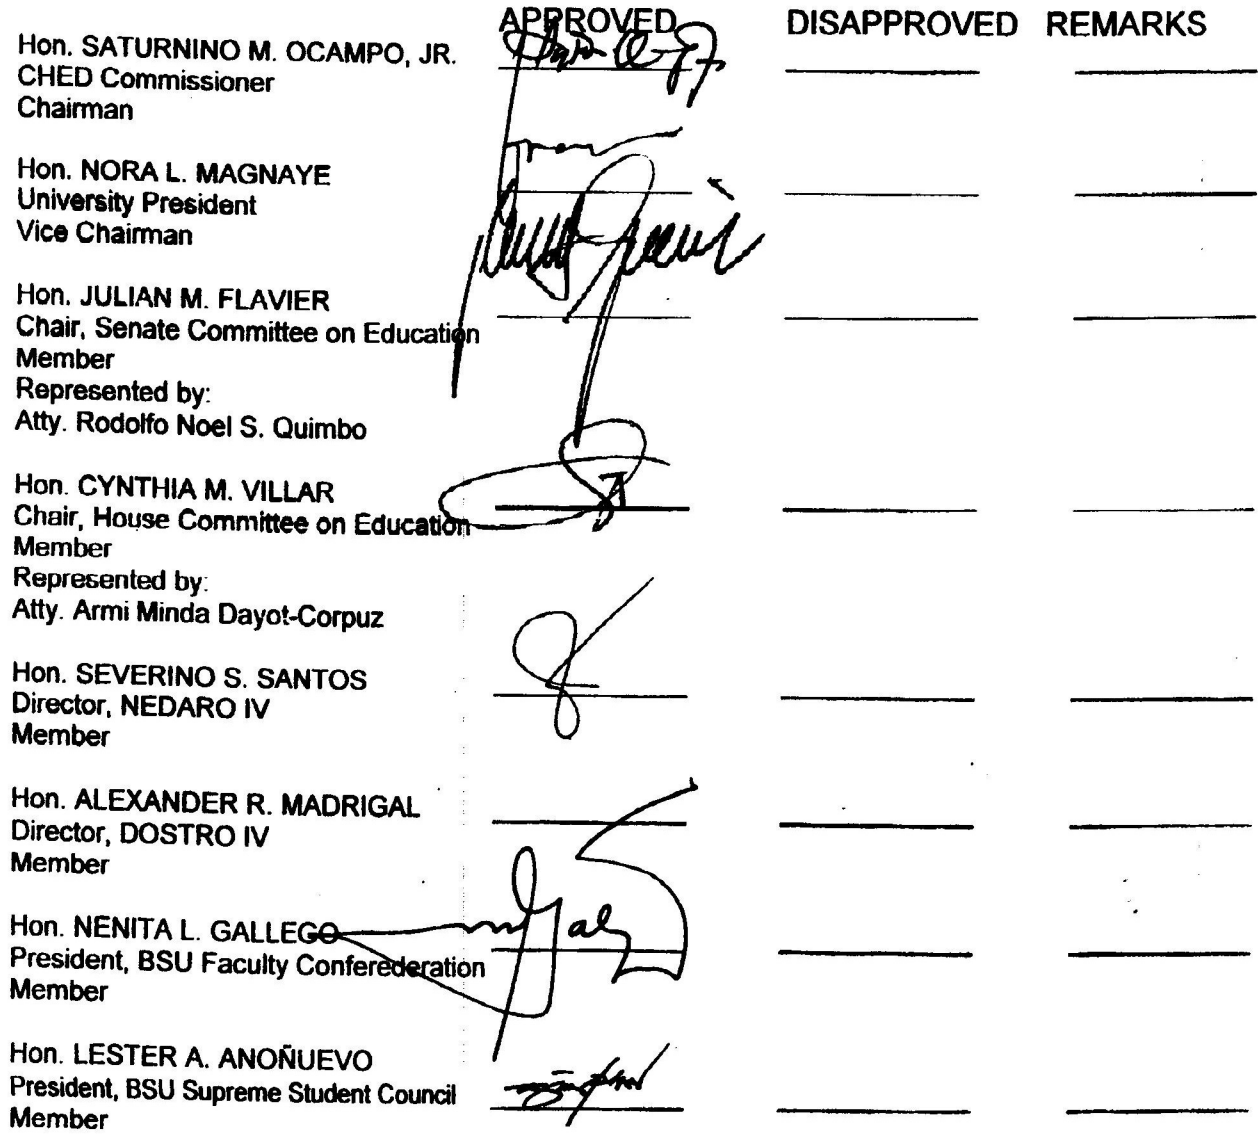 APPROVED DISAPPROVED REMARKS
Hon. SATURNINO M. OCAMPO, JR.
CHED Commissioner
Chairman
Hon. NORA L. MAGNAYE
University President
Vice Chairman
Hon. JULIAN M. FLAVIER
Chair, Senate Committee on Education
Member
Represented by:
Atty. Rodolfo Noel S. Quimbo
Hon. CYNTHIA M. VILLAR
Chair, House Committee on Education
Member
Represented by:
Atty. Armi Minda Dayot-Corpuz
Hon. SEVERINO S. SANTOS
Director, NEDARO IV
Member
Hon. ALEXANDER R. MADRIGAL
Director, DOSTRO IV
Member
Hon. NENITA L. GALLEGO
President, BSU Faculty Conferederation
Member
Hon. LESTER A. ANOÑUEVO
President, BSU Supreme Student Council
Member